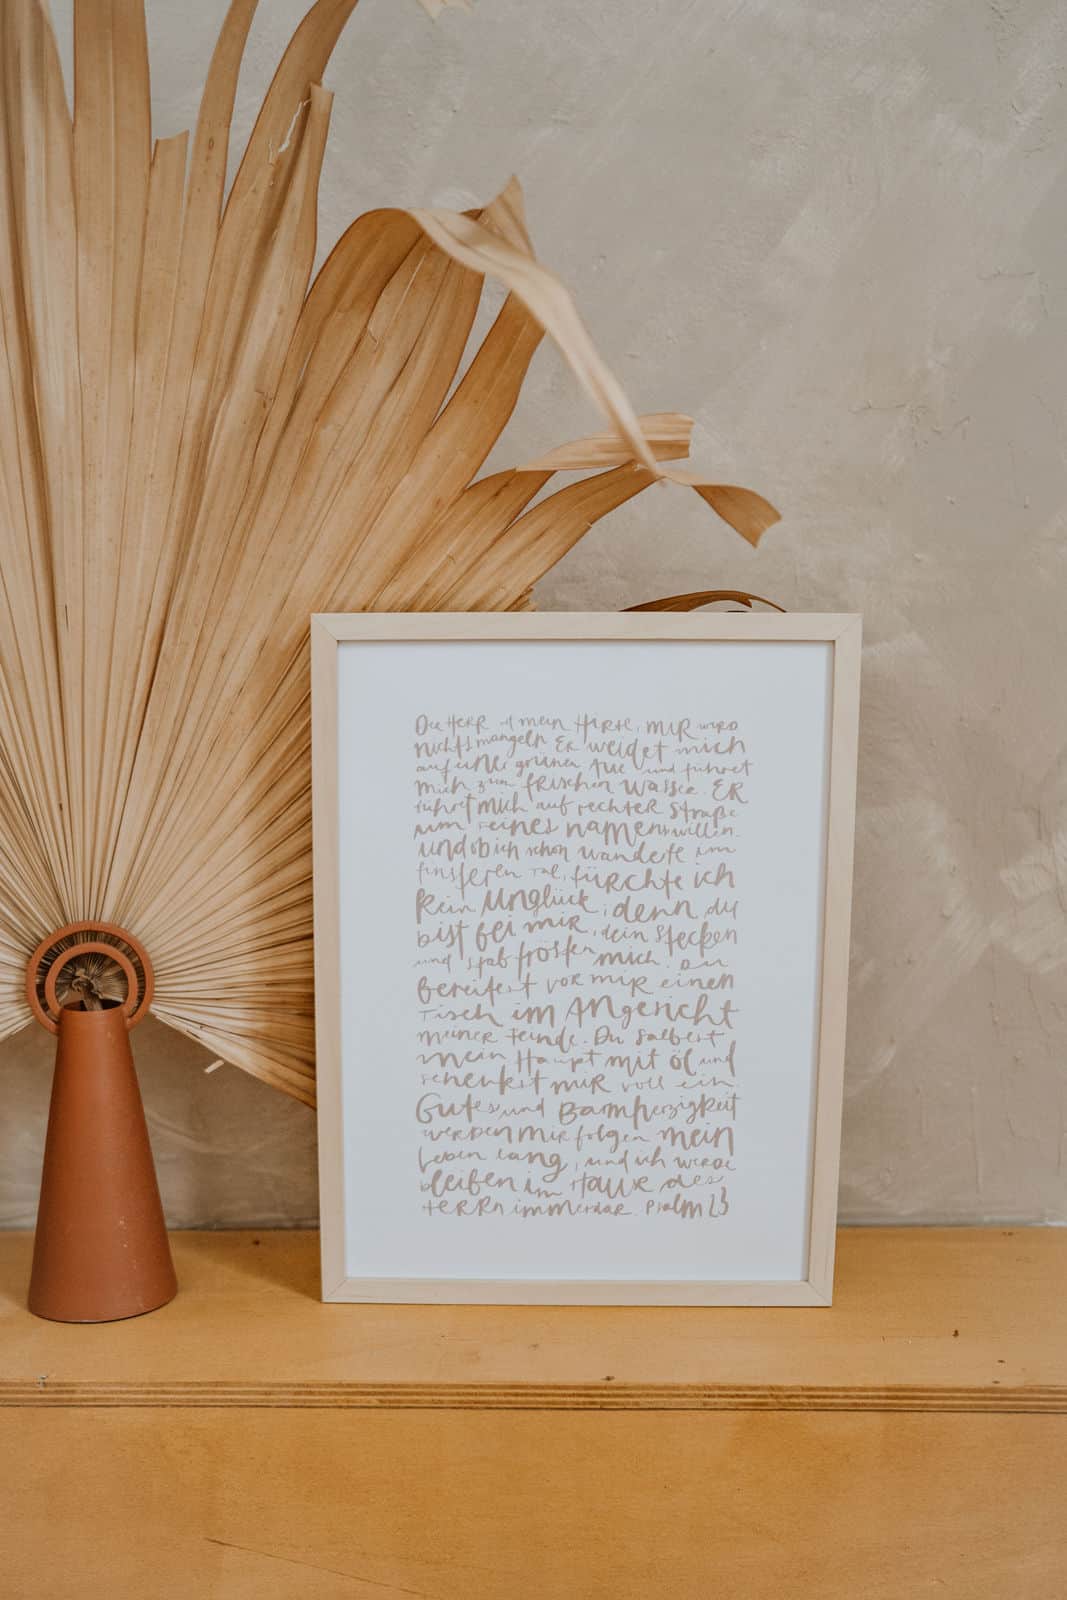 Der HERR ist mein Hirte, mir wird
nichts mangeln. Er weidet mich
auf einer grünen Aue und führet
mich zum frischen Wasser. Er
führet mich auf rechter Straße
um seines namens willen.
und ob ich schon wanderte im
finsteren Tal, fürchte ich
kein Unglück, denn du
bist bei mir, dein Stecken
und Stab trösten mich. Du
bereitest vor mir einen
Tisch im Angesicht
meiner Feinde. Du salbest
mein Haupt mit öl und
schenkest mir voll ein.
Gutes und Barmherzigkeit
werden mir folgen mein
Leben lang, und ich werde
bleiben im Hause des
HERRn immerdar. Psalm 23